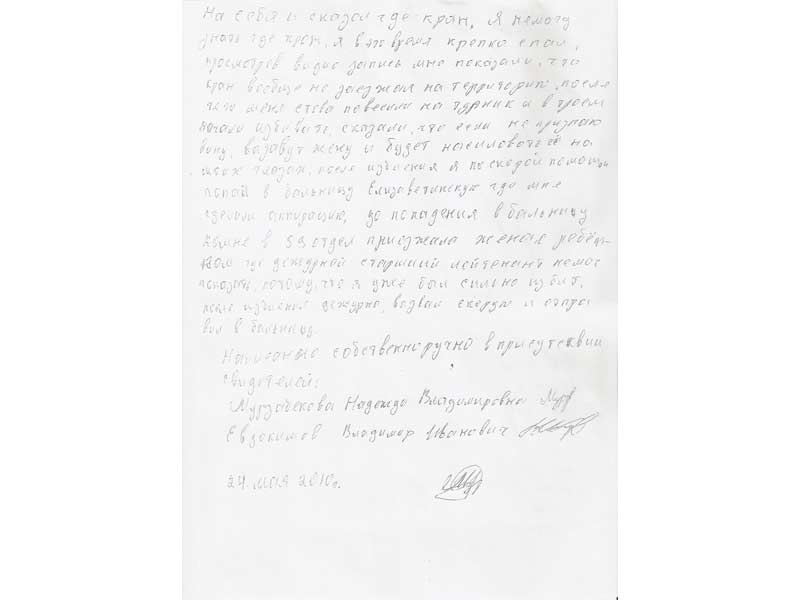 На себя и сказал где кран, я немогу
знать где кран, я в это время крепко спал,
просмотрев видио запись мне показали, что
кран вообще не заезжал на территорию, после
чего меня снова повесили на турник и в троем
начали избивать, сказали, что если не признаю
вину, вазовут жену и будет насиловаться на
моих глазах, после избиения я по скорой помощи
попал в больницу Елизаветинскую где мне
сделали аппирацию, до попадения в больницу
комне в 33 отдел приезжала жена с
где дежурной старший лейтенант немог
показать, потому, что я уже был сильно избит,
после избиения дежурно, вазвал скорую и отпра
вил в больницу.
Написанно собственноручно в присутсвии
свидетелей:
Мурзабекова Надежда Владимировна
Евдокимов Владимир Иванович
24 мая 2010г.